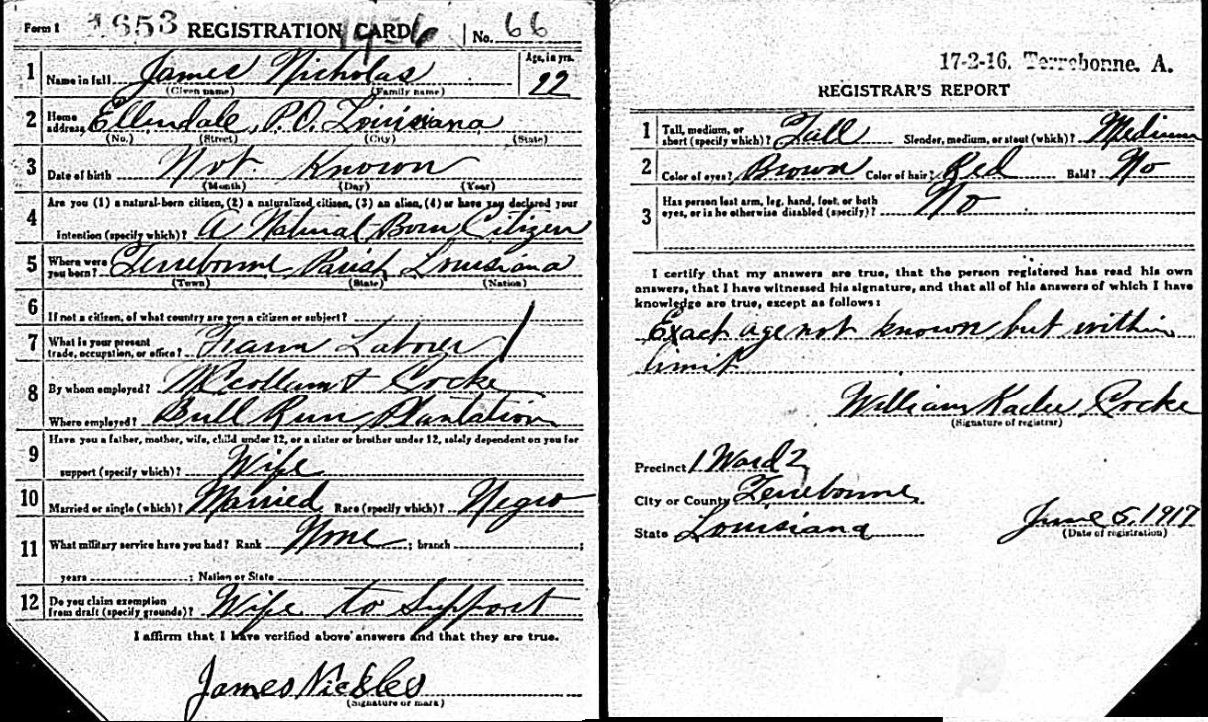 Form 1 1653 REGISTRATION CARD 1456 No. 66
1 Name in full James Nicholas Age, in yrs. 22
(Given name) (Family name)
2 Home address Ellendale, P.O. Louisiana
(No.) (Street) (City) (State)
3 Date of birth Not Known
(Month) (Day) (Year)
4 Are you (1) a natural-born citizen, (2) a naturalized citizen, (3) an alien, (4) or have you declared your
intention (specify which)? A Natural Born Citizen
5 Where were you born? Terrebonne Parish Louisiana
(Town) (State) (Nation)
6 If not a citizen, of what country are you a citizen or subject?
7 What is your present trade, occupation, or office? Farm Laborer
8 By whom employed? McCollam & Cocke
Where employed? Bull Run Plantation
9 Have you a father, mother, wife, child under 12, or a sister or brother under 12, solely dependent on you for
support (specify which)? Wife
10 Married or single (which)? Married Race (specify which)? Negro
11 What military service have you had? Rank None ; branch ;
years ; Nation or State
12 Do you claim exemption from draft (specify grounds)? Wife to Support
I affirm that I have verified above answers and that they are true.
James Nickles
(Signature or mark)
17-2-16. Terrebonne. A.
REGISTRAR'S REPORT
1 Tall, medium, or short (specify which)? Tall Slender, medium, or stout (which)? Medium
2 Color of eyes? Brown Color of hair? Red Bald? No
3 Has person lost arm, leg, hand, foot, or both eyes, or is he otherwise disabled (specify)? No
I certify that my answers are true, that the person registered has read his own
answers, that I have witnessed his signature, and that all of his answers of which I have
knowledge are true, except as follows:
Exact age not known but within
limit
William Cocke
(Signature of registrar)
Precinct 1 Ward 2
City or County Terrebonne
State Louisiana June 5, 1917
(Date of registration)